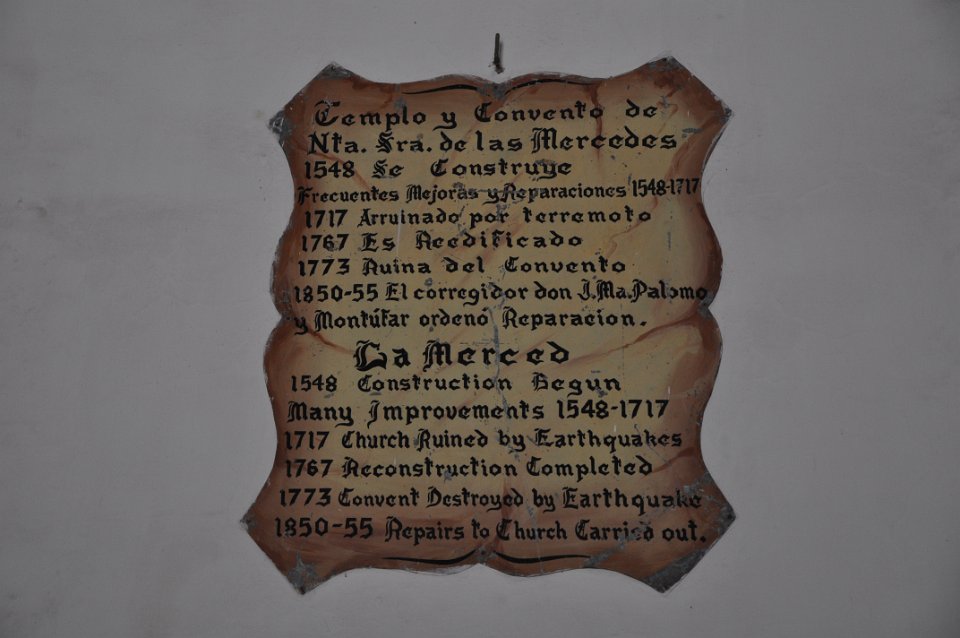 Templo y Convento de
Nta. Sra. de las Mercedes
1548 Se Construye
Frecuentes Mejoras y Reparaciones 1548-1717
1717 Arruinado por terremoto
1767 Es Reedificado
1773 Ruina del Convento
1850-55 El corregidor don J. Ma. Palomo
y Montúfar ordenó Reparacion.
La Merced
1548 Construction Begun
Many Improvements 1548-1717
1717 Church Ruined by Earthquakes
1767 Reconstruction Completed
1773 Convent Destroyed by Earthquake
1850-55 Repairs to Church Carried out.